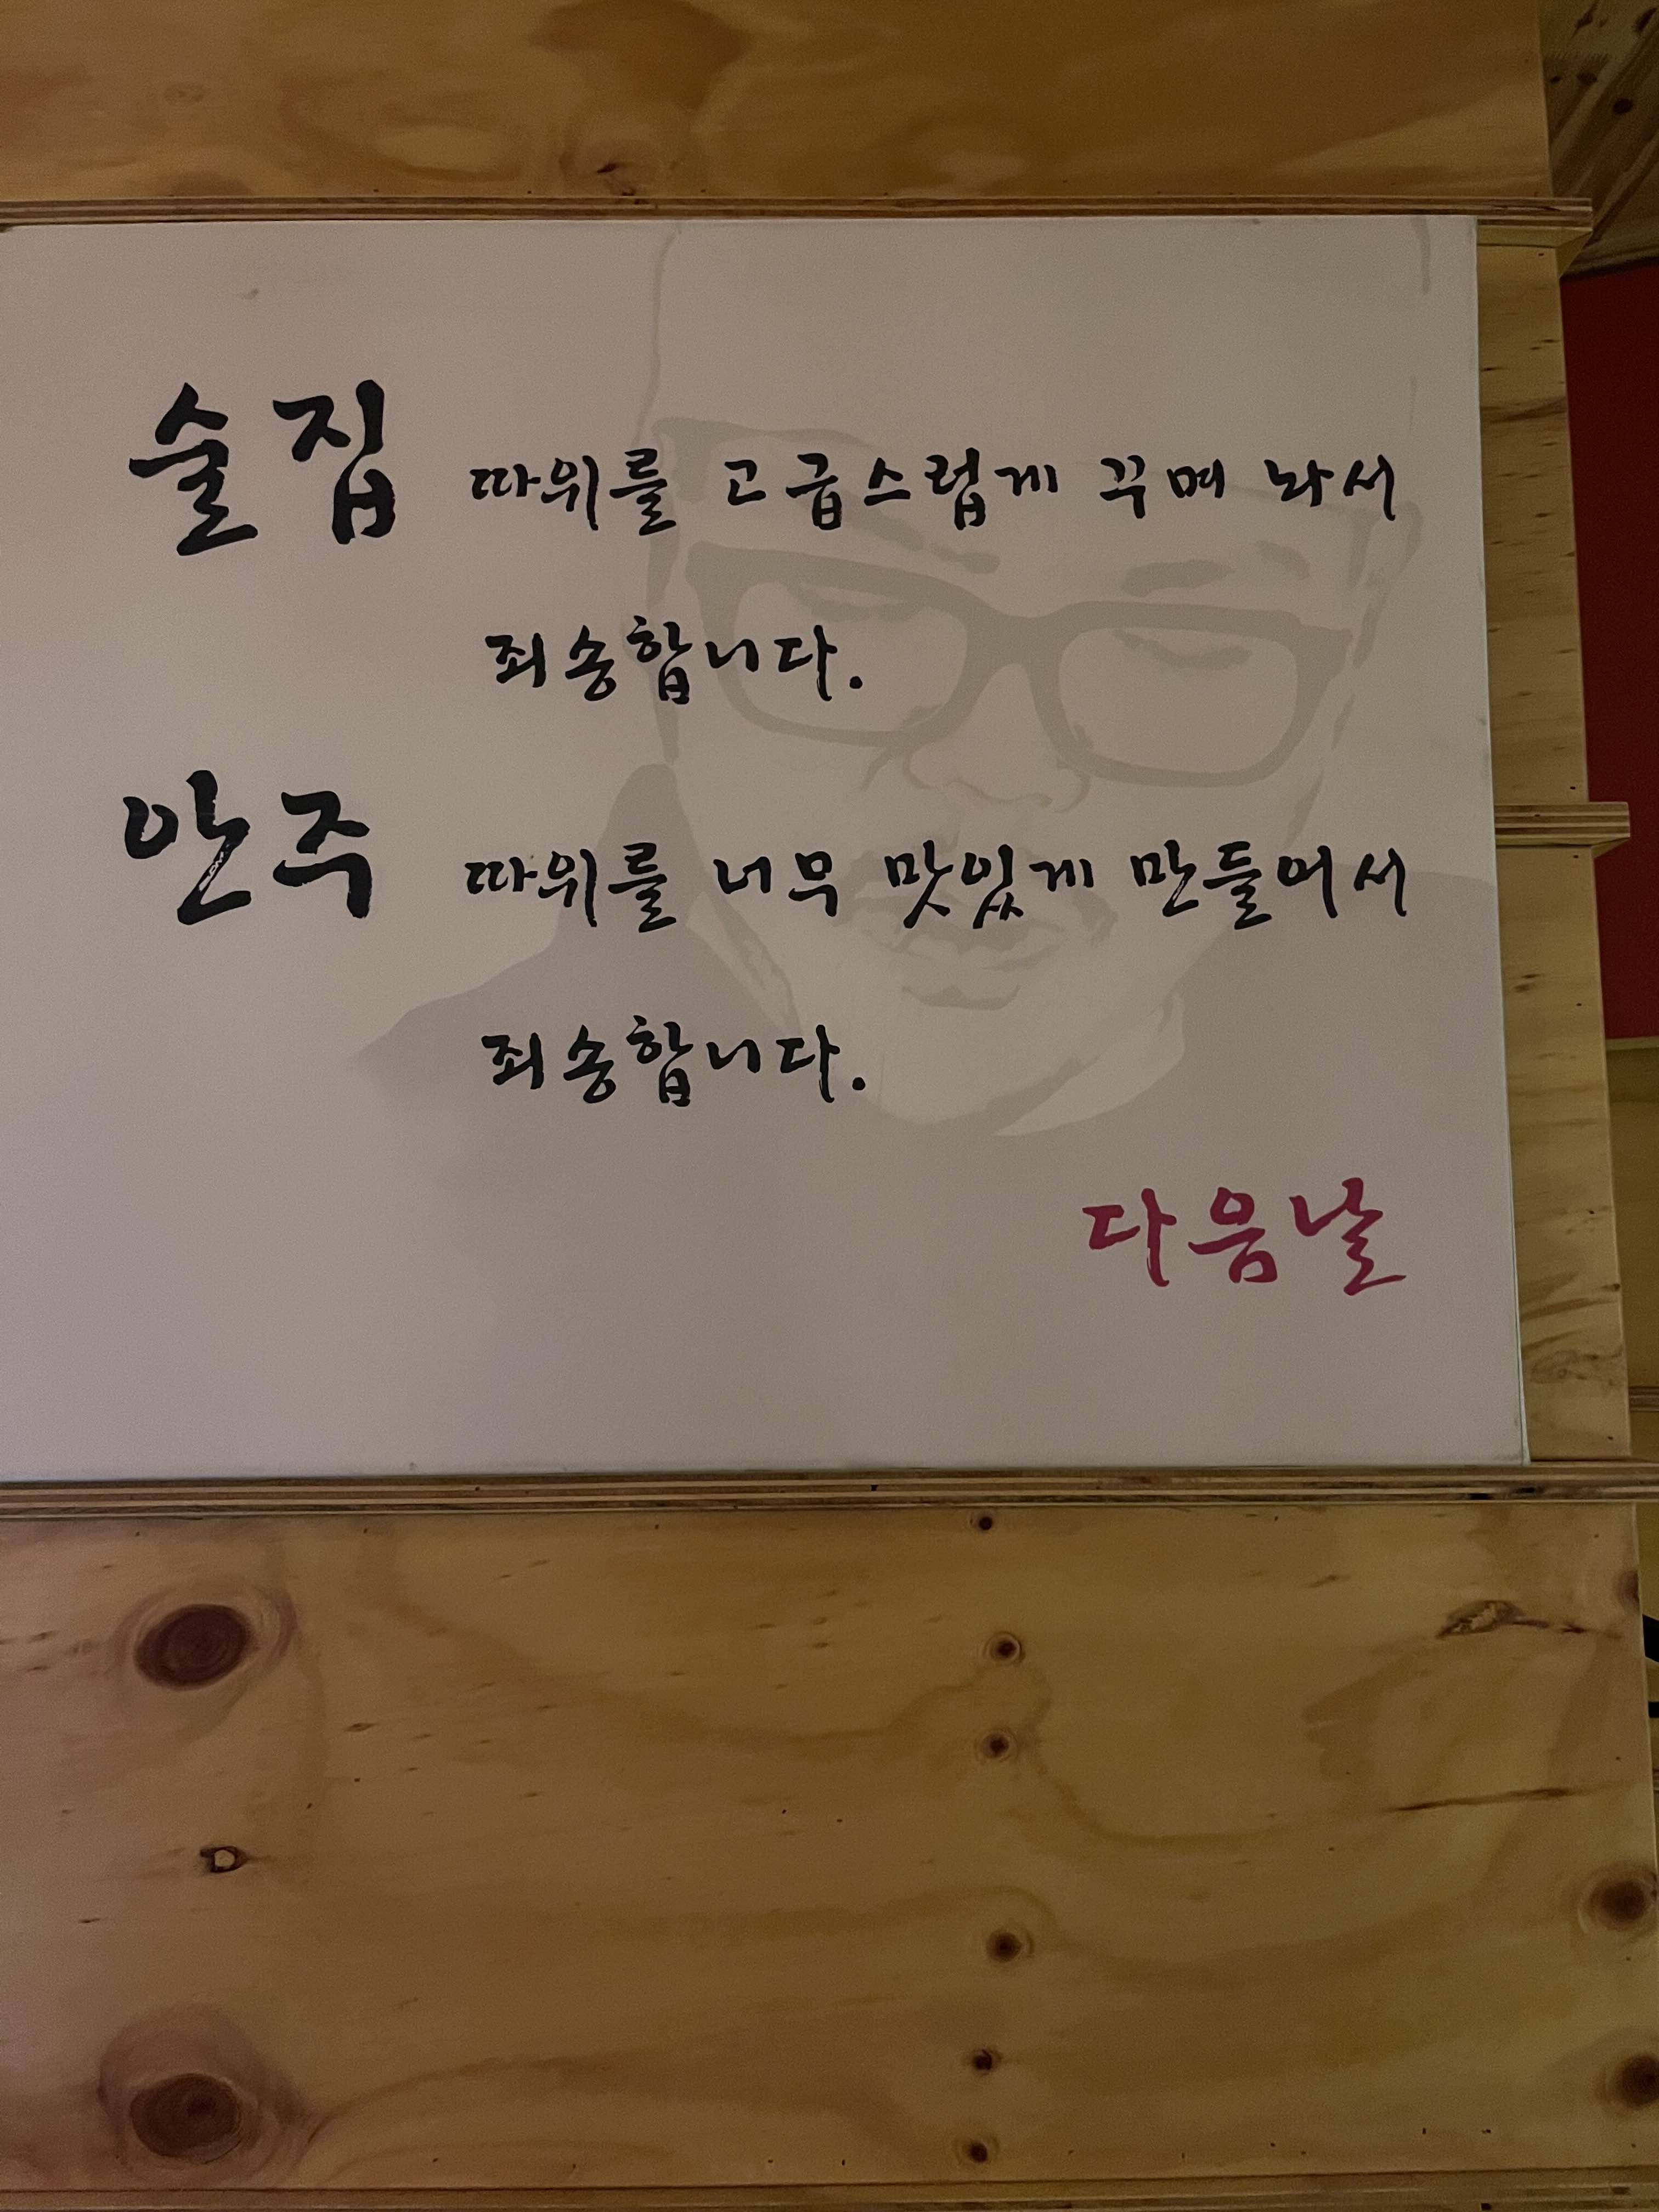 술집 따위를 고급스럽게 꾸며 놔서
죄송합니다.
안주 따위를 너무 맛있게 만들어서
죄송합니다.
다음날